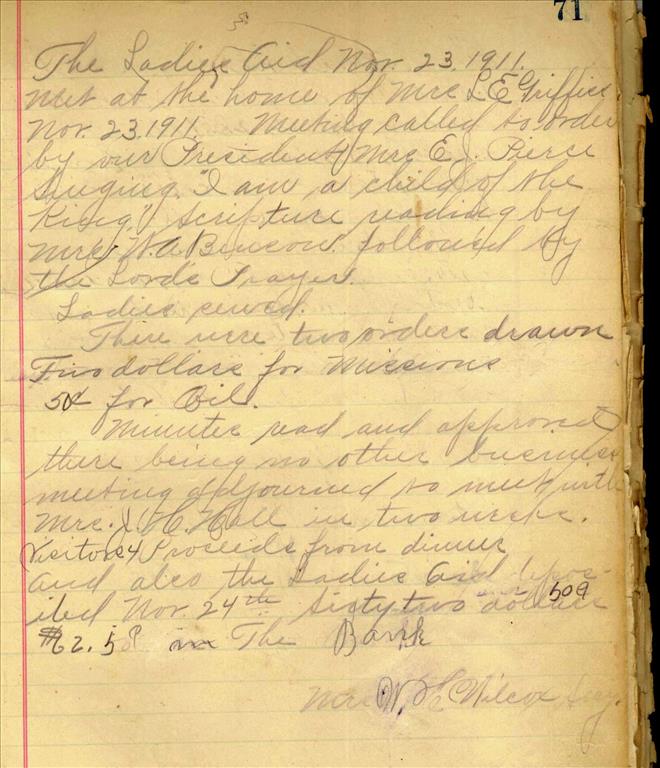 71
The Ladies Aid Nov. 23. 1911.
met at the home of Mrs L. E. Griffies
Nov. 23. 1911. Meeting called to order
by our President Mrs E. J. Pierce
Singing "I am a child of the
King," Scripture reading by
Mrs W. A. Benson. followed by
the Lord's Prayer.
Ladies sewed.
There were two orders drawn
Two dollars for Missions
5¢ for Oil.
Minutes read and approved
there being no other business
meeting adjourned to meet with
Mrs. J. H. Hall in two weeks.
Visitors 4 Proceeds from dinner
and also the Ladies Aid depos-
ited Nov. 24th Sixty two dollars 50¢
$62.50 in The Bank
Mrs W. H. Wilcox Secy.